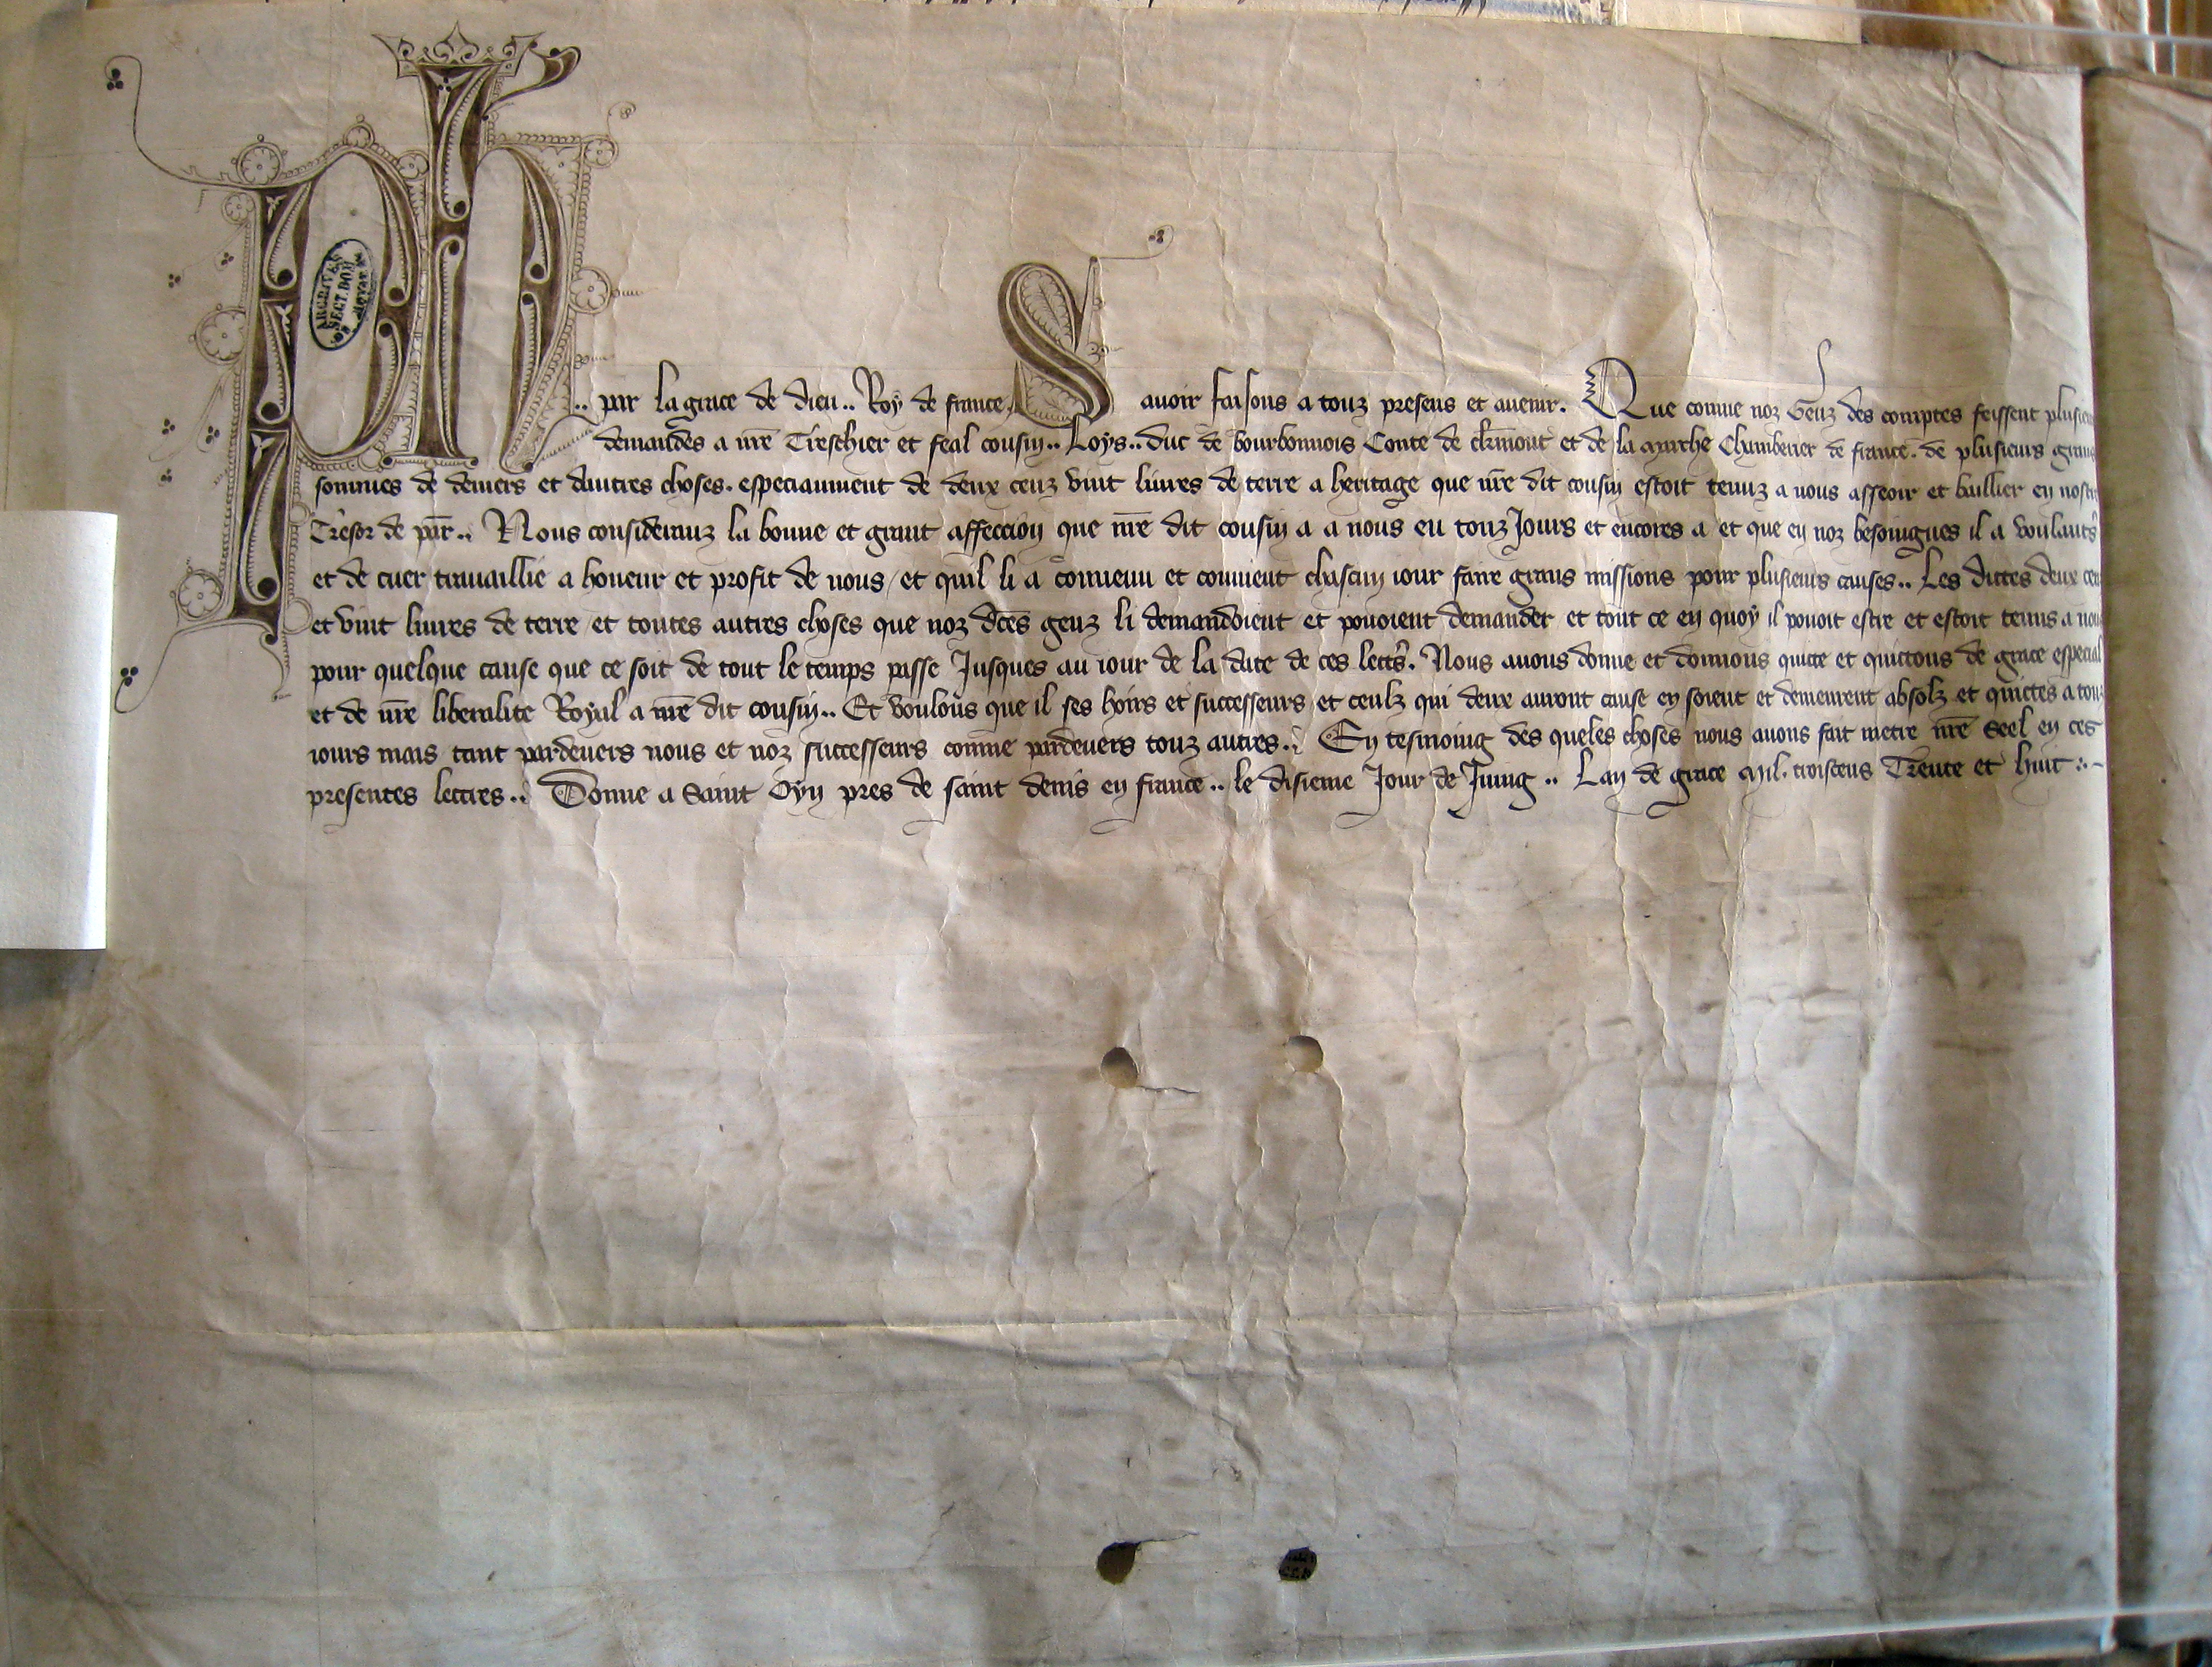 Ph
ARCHIVES
SECT. DOM.
.. par la grace de dieu .. Roy de france, Savoir faisons a touz presens et auenir. Que comme noz Genz des comptes feissent
demandes a nre Treschier et feal cousin .. Loys .. duc de bourbonnois Conte de clermont et de la marche Chamberier de france. de plusieurs
sommes de deniers et dautres choses. especiaument de deux cenz vint liures de terre a heritage que nre dit cousin estoit tenuz a nous asseoir et baillier en
Tresor de par .. Nous consideranz la bonne et grant affeccion que nre dit cousin a a nous eu touz Jours et encores a et que en noz besoingnes il a
et de cuer trauaillie a honeur et profit de nous / et quil li a conuenu et conuient chascun iour faire grans missions pour plusieurs causes .. Les dictes deux
et vint liures de terre et toutes autres choses que noz dces genz li demandoient et pouoient demander et tout ce en quoy il pouoit estre et estoit tenus a
pour quelque cause que ce soit de tout le temps passe Jusques au iour de la date de ces lettres. Nous auons donne et donnons quicte et quictons de grace especial
et de nre liberalite Royal a nre dit cousin .. Et voulons que il ses hoirs et successeurs et ceulz qui deux auront cause en soient et demeurent absolz et quictes a
iours mais tant pardeuers nous et noz successeurs comme pardeuers touz autres .. En tesmoing des queles choses nous auons fait metre nre Seel en ces
presentes lettres .. Donne a Saint Oyn pres de saint denis en france .. le disieme Jour de Juing .. Lan de grace Mil. troiscens Trente et huit :~